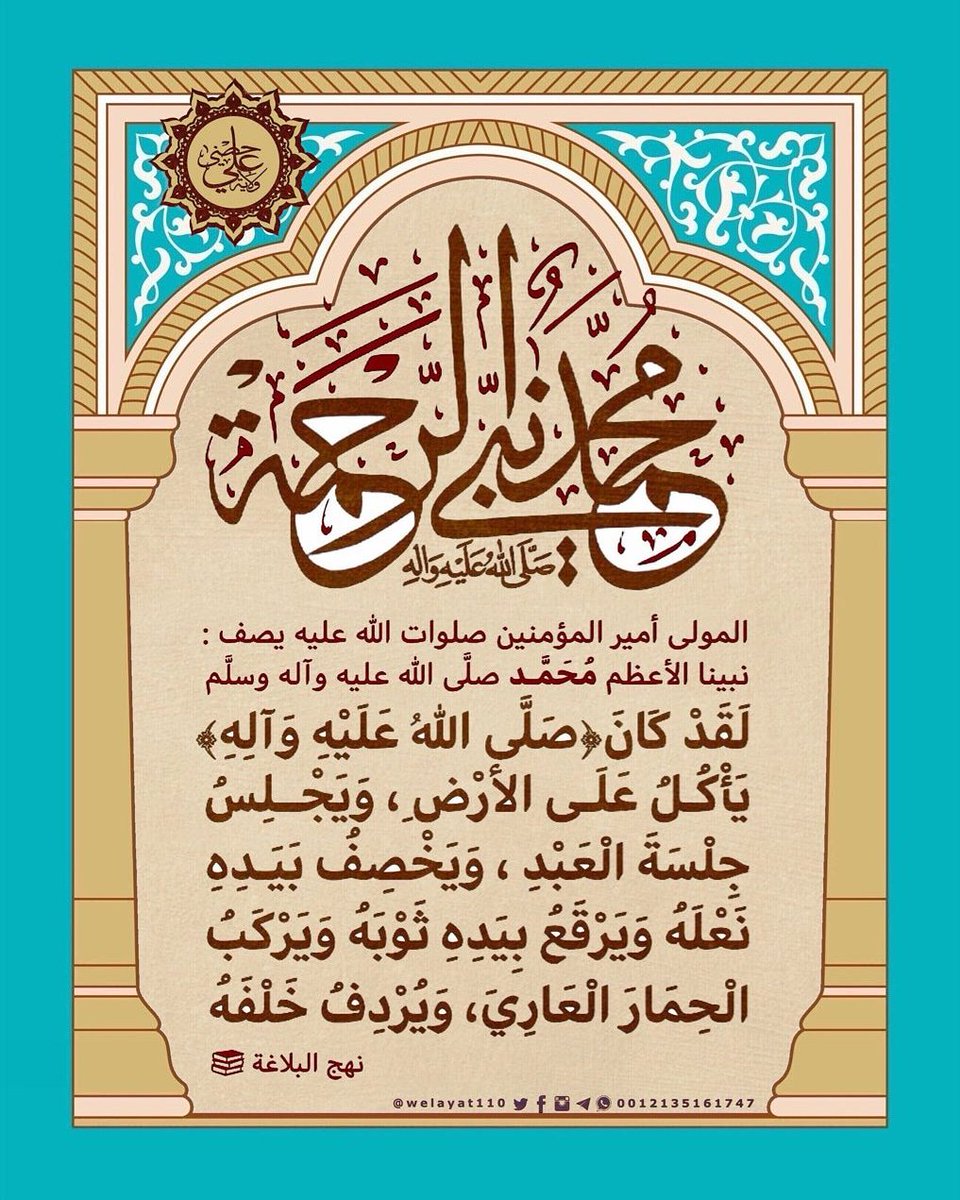 ولاية علي حصني
محمد نبي الرحمة
صَلَّى اللهُ عَلَيْهِ وَآلِهِ
المولى أمير المؤمنين صلوات الله عليه يصف :
نبينا الأعظم مُحَمَّـد صلَّى الله عليه وآله وسلَّم
لَقَدْ كَانَ ﴿صَلَّى اللهُ عَلَيْهِ وَآلِهِ﴾
يَأْكُـلُ عَلَـى الأرْضِ ، وَيَجْـلِـسُ
جِلْسَةَ الْعَبْدِ ، وَيَخْصِفُ بَيَـدِهِ
نَعْلَهُ وَيَرْقَعُ بِيَدِهِ ثَوْبَهُ وَيَرْكَبُ
الْحِمَارَ الْعَارِيَ، وَيُرْدِفُ خَلْفَهُ
نهج البلاغة
@welayat110 0012135161747